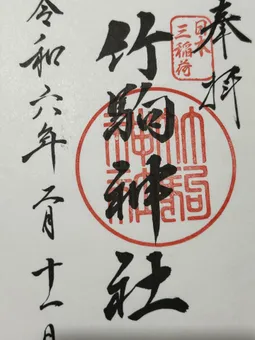 奉拝
日本
三稲荷
竹駒神社
竹駒神社
令和六年二月十一日